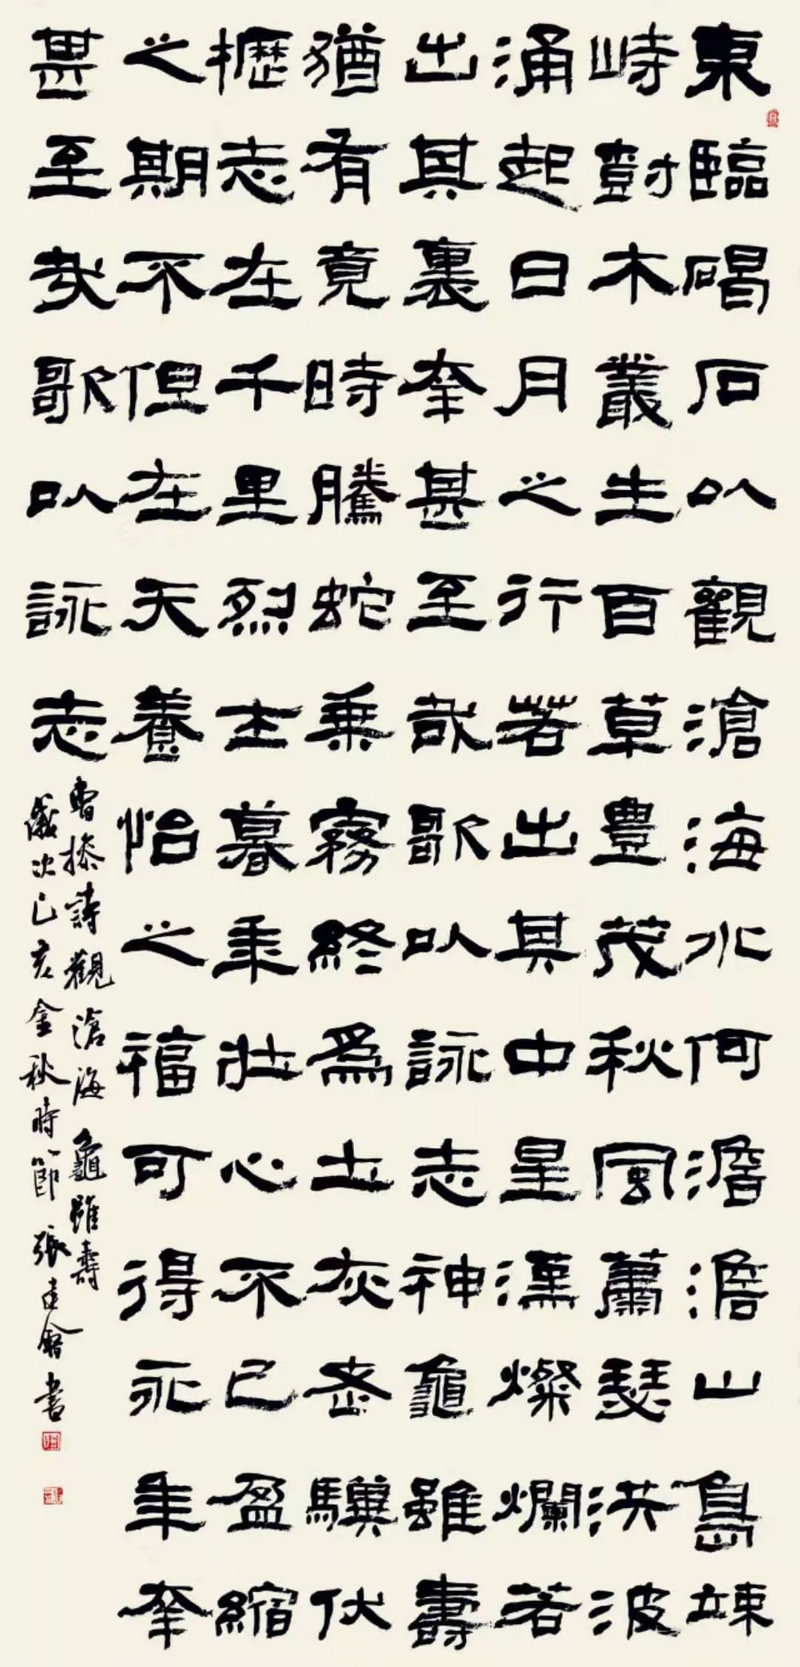 東臨碣石以觀滄海水何澹澹山島竦
峙尌木叢生百草豐茂秋風蕭瑟洪波
涌起日月之行若出其中星漢燦爛若
出其裏幸甚至哉歌以詠志神龜雖壽
猶有竟時騰蛇乘霧終為土灰老驥伏
櫪志在千里烈士暮年壯心不已盈縮
之期不但在天養怡之福可得永年幸
甚至哉歌以詠志
曹操詩觀滄海 龜雖壽
歲次己亥金秋時節張建會書